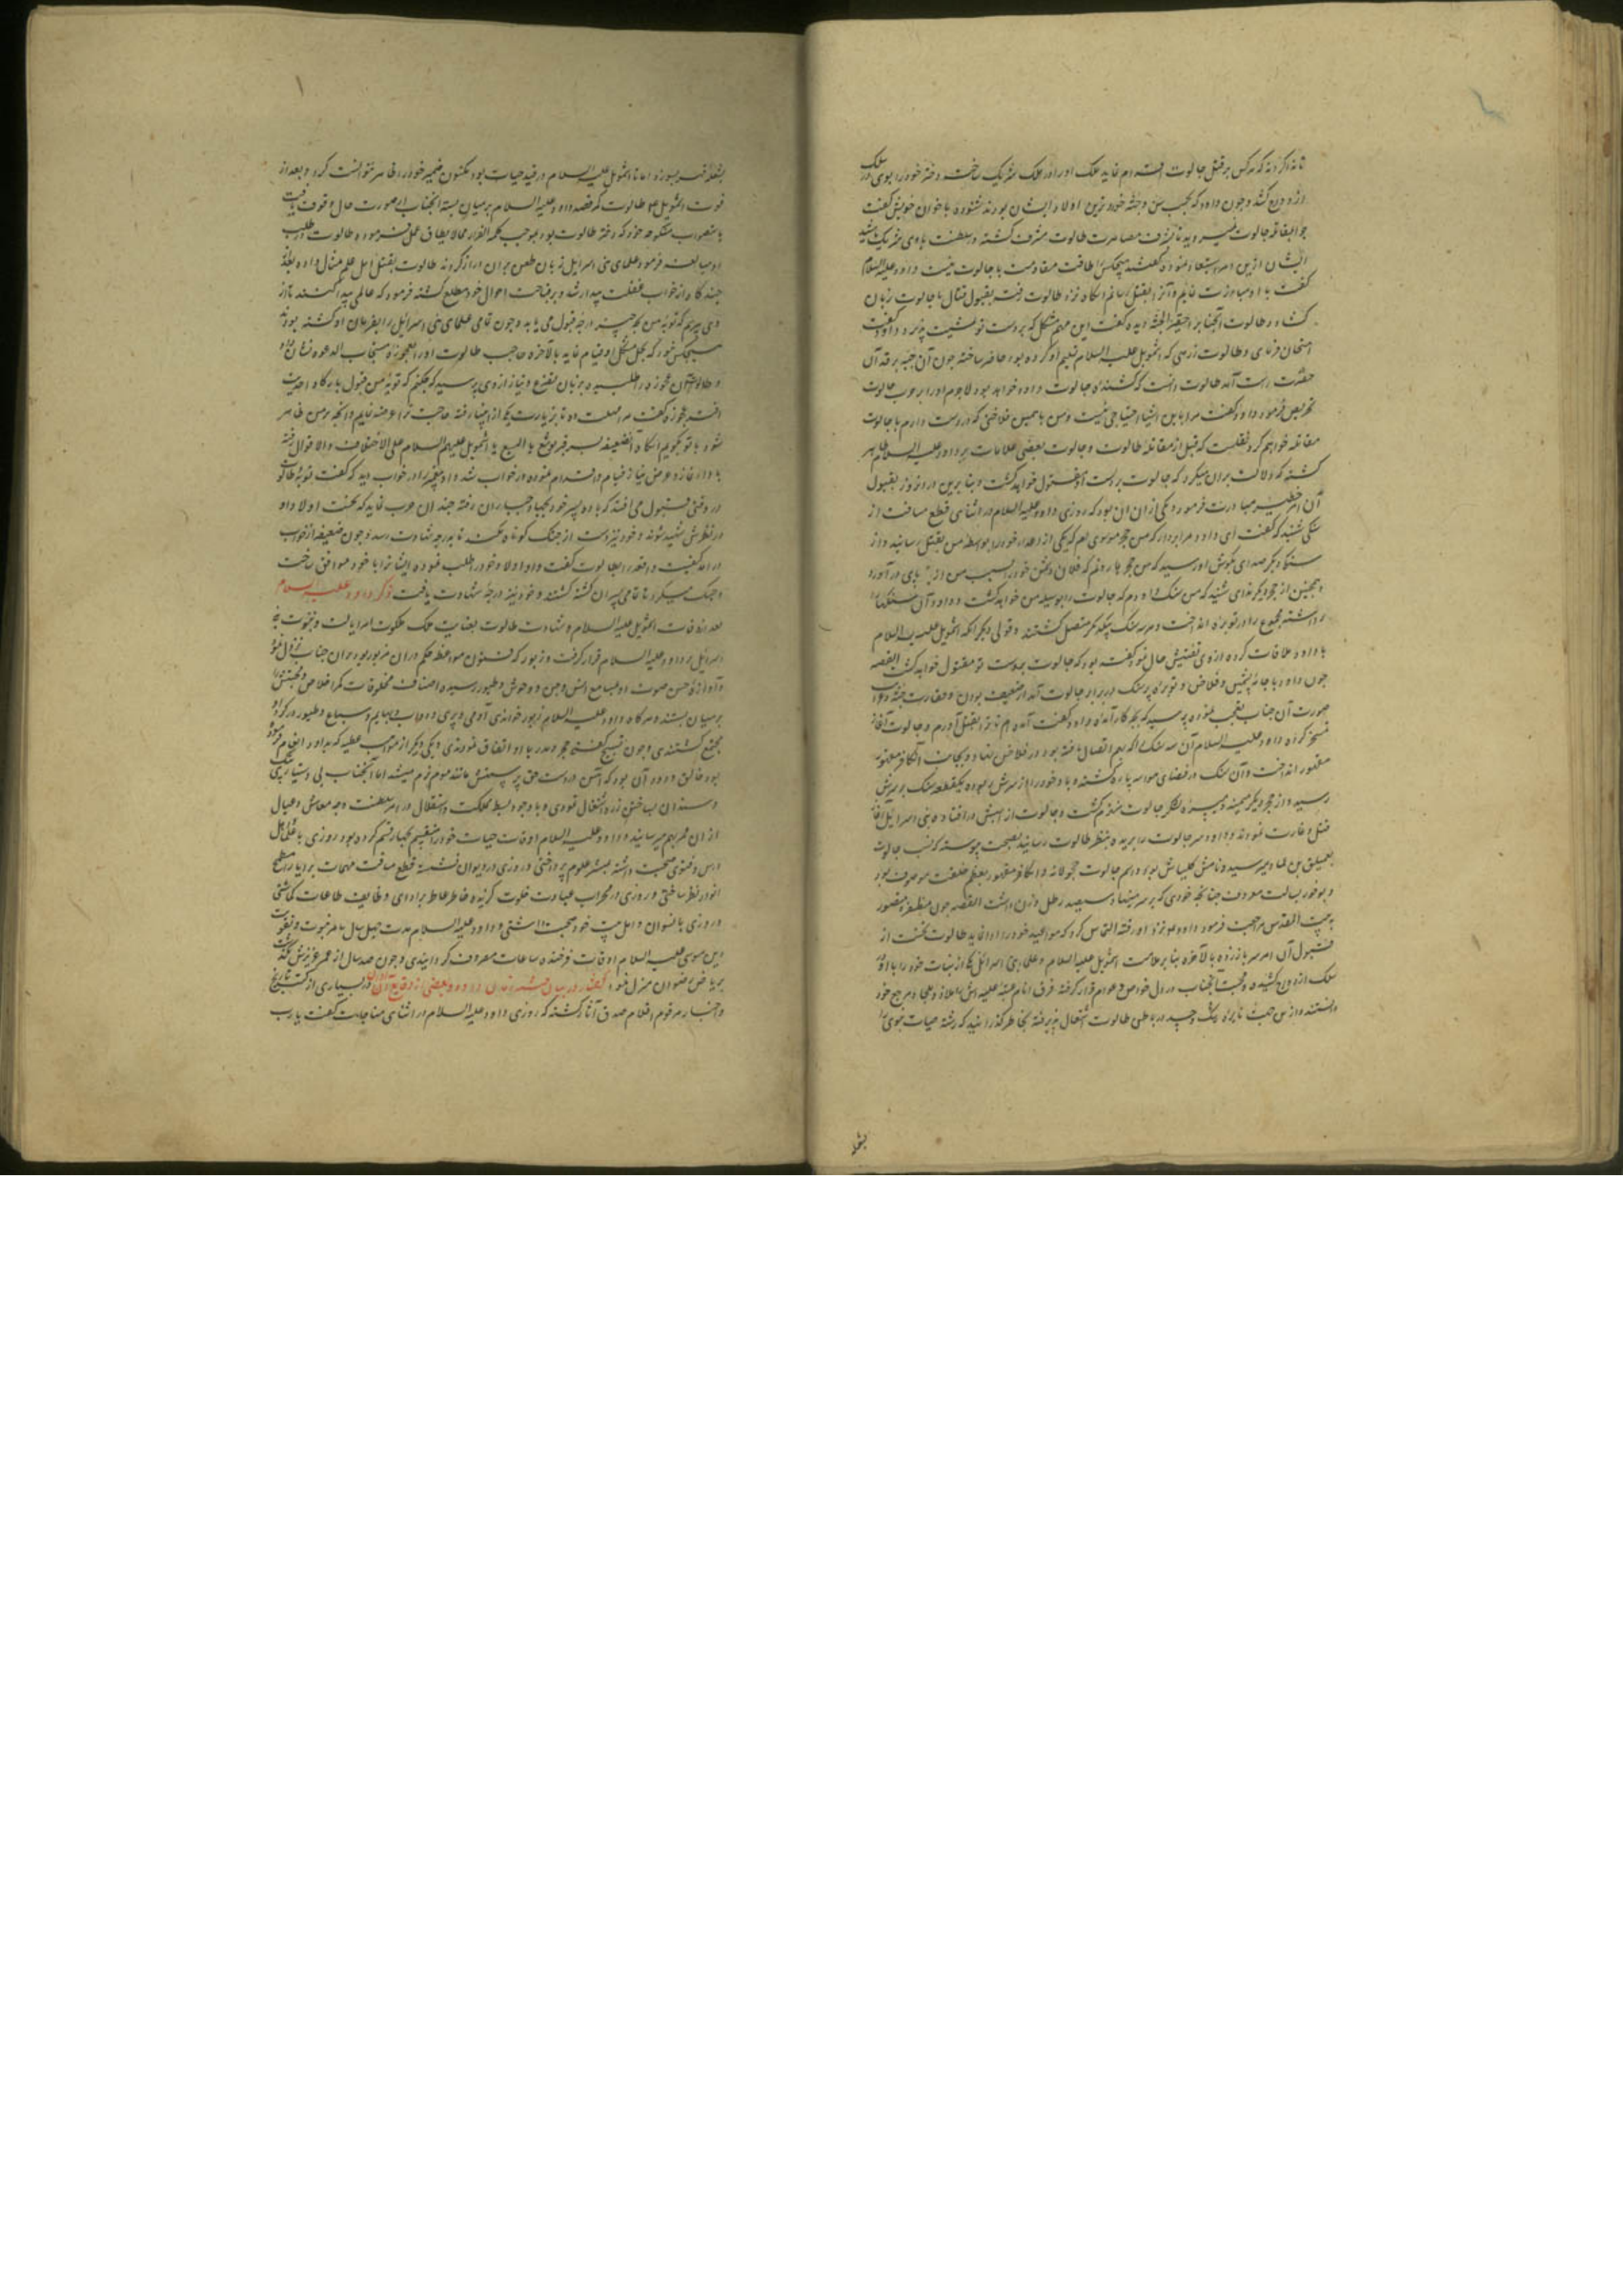 ندا کردند که هر کس بر قتل جالوت اقدام نماید ملک او را در ملک شریک ساخته دختر خود را بوی
کشد و چون داود که بحسب سن و جثه خوردترین اولاد ایشان بود شنوده با خوان خویش گفت
چرا بمقاتله جالوت نمیروید تا بشرف مصاهرت طالوت مشرف گشته در سلطنت با وی شریک باشید
ایشان ازین امر استبعاد نموده گفتند هیچکس را طاقت مقاومت با جالوت نیست داود علیه السلام
گفت با او مبارزت نمایم و او را بقتل رسانم انگاه نزد طالوت رفته بقبول قتال با جالوت زبان
کشاد و طالوت آنجناب را حقیر الجثه دیده گفت این مهم مشکل که بر دست تو تمشیت پذیرد داود گفت
امتحان فرمای و طالوت زرهی که اشمویل علیه السلام تسلیم او کرده بود حاضر ساخته چون آن جبه بر قد آن
حضرت راست آمد طالوت دانست که کشنده جالوت داود خواهد بود لاجرم او را بر حرب جالوت
تحریص فرمود داود گفت مرا باین اشیا احتیاجی نیست و من با همین فلاخن که در دست دارم با جالوت
مقاتله خواهم کرد نقلست که قبل از مقاتله طالوت و جالوت بعضی علامات بر داود علیه السلام ظاهر
گشته که دلالت بران میکرد که جالوت بر دست او مقتول خواهد گشت و بنابرین در ان روز بقبول
آن امر خطیر مبادرت فرمود و یکی از ان ان بود که روزی داود علیه السلام در اثنای قطع مسافت از
سنگی شنید که گفت ای داود مرا بردار که من حجر موسوی ام که یکی از اعداء خود را بواسطه من بقتل رسانید و از
سنک دیگر صدای بگوش او رسید که من حجر هارونم که فلان دشمن خود را بسبب من از پای در آورد
و همچنین از حجر دیگر ندای شنید که من سنک داودم که جالوت را بوسیله من خواهد کشت داود آن سنگها را
برداشته مجموع را در توبره انداخت و هر سه سنک بیکدیگر متصل گشتند و قولی دیگر انکه اشمویل علیه السلام
با داود ملاقات کرده از وی تفتیش حال نمود گفته بود که جالوت بدست تو مقتول خواهد گشت القصه
چون داود با جامه پشمین و فلاخن و توبره پر سنک در برابر جالوت آمد از ضعیف بودن و حقارت جثه
صورت آن جناب تعجب نموده پرسید که بچه کار آمده داود گفت آمده ام تا ترا بقتل آورم و جالوت آغاز
تمسخر کرده داود علیه السلام آن سه سنک را که بهم اتصال یافته بود در فلاخن نهاد و بجانب آن کافر
مقهور انداخت و آن سنک در فضای هوا سه پاره گشته و باد خود را از سرش ربوده یکقطعه سنک بر سرش
رسید و از حجر دیگر میمنه و میسره لشکر جالوت منهزم گشت و جالوت از اسپش در افتاد بنی اسرائیل آغاز
قتل و غارت نمودند و داود سر جالوت را بریده بنظر طالوت رسانید بصحت پیوسته که نسب جالوت
بعملیق بن لاود میرسید و نامش کلیاس بود و اسم جالوت و آن کافر مقهور بعظم خلقت موصوف بود
و بوفور بسالت معروف چنانکه خودی که بر سر مینهاد سیصد رطل وزن داشت القصه چون مظفر و منصور
به بیت المقدس مراجعت فرمود داود نزد او رفته التماس کرد که مواعید خود را ادا نماید طالوت نخست از
قبول آن امر سر باز زده بالآخره بنابر ملامت اشمویل علیه السلام و علماء بنی اسرائیل یکی از بنات خود را با او
سلک ازدواج کشیده و محبت آنجناب در دل خواص و عوام قرار گرفته فرق انام عتبه علیه اش را ملاذ و ملجا و مرجع خود
دانستند و ازین جهت نایره رشک و حسد در باطن طالوت اشتعال پذیرفته بخاطر گذرانید که رشته حیات نبوی را
بقطع
بقطع رساند اما تا اشمویل علیه السلام در قید حیات بود مکنون ضمیر خود را ظاهر نتوانست کرد و بعد از
فوت اشمویل طالوت کمر قصد داود علیه السلام بر میان بسته آنجناب از صورت حال وقوف یافت
باستصواب منکوحه خود که دختر طالوت بود بموجب کلمه الفرار مما لا یطاق عمل فرموده طالوت در طلب
او مبالغه فرمود علمای بنی اسرائیل زبان طعن بران دراز کردند طالوت بقتل اهل علم مثال داده بعد
چند کاه از خواب غفلت بیدار شد و بر قباحت احوال خود مطلع گشته فرمود که عالمی پیدا کنند تا از
وی پرسم که توبه من بچه چیز درجه قبول می یابد و چون تمامی علمای بنی اسرائیل را بفرمان او کشته بودند
هیچکس نبود که بحل مشکل او قیام نماید بالآخره حاجب طالوت او را بعجوزه مستجاب الدعوه نشان داد
و طالوت آن عجوزه را طلبیده بزبان تضرع و نیاز از وی پرسید که چکنم که توبه من قبول بارگاه احدیت
افتد عجوزه گفت مرا مهلت ده تا بزیارت یکی از انبیا رفته حاجت ترا عرضه نمایم و انچه بر من ظاهر
شود با تو بگویم انگاه آن ضعیفه بسر قبر یوشع یا الیسع یا اشمویل علیهم السلام علی الاختلاف الاقوال رفته
بادای نماز و عرض نیاز قیام و اقدام نموده در خواب شد و پیغمبر را در خواب دید که گفت توبه طالوت
در وقتی قبول می افتد که با ده پسر خود بجهاد جباران رفته چندان حرب نماید که نخست اولاد او
در نظرش شهید شوند و خود نیز دست از جنگ کوتاه نکند تا بدرجه شهادت رسد و چون ضعیفه از خواب
در آمد کیفیت واقعه را بطالوت گفت و او اولاد خود را طلب نموده ایشانرا با خود موافق ساخت
و جنگ میکرد تا تمامی پسران کشته گشتند و خود نیز درجه شهادت یافت ذکر داود علیه السلام
بعد از وفات اشمویل علیه السلام و شهادت طالوت بعنایت ملک ملکوت امر ایالت و نبوت بنی
اسرائیل بر داود علیه السلام قرار گرفت و زبور که فنون مواعظ و حکم در ان مزبور بود بران جناب نزول نمود
و آوازه حسن صوت او بمسامع انس و جن و وحوش و طیور رسیده اصناف مخلوقات کمر اخلاص و محبتش را
بر میان بستند و هرگاه داود علیه السلام زبور خواندی آدمی و پری و دواب و بهایم و سباع و طیور در گرد او
مجتمع گشتندی و چون تسبیح گفتی حجر و مدر با او اتفاق نمودندی و یکی دیگر از مواهب عطیه که بداود انعام فرموده
بود خالق ودود آن بود که آهن در دست حق پرستش مانند موم نرم میشد اما آنجناب بی دستیاری
و سندان بساختن زره اشتغال نمودی و با وجود بسط مملکت و استقلال در امر سلطنت وجه معاش و عیال
از ان ممر بهم میرسانید و داود علیه السلام اوقات حیات خود را تقسیم بچهار قسم کرده بود روزی با علماء
درس و فتوی صحبت داشته بنشر علوم پرداختی و روزی در دیوان نشسته قطع مسافت مهمات برایا را مطمح
انور نظر ساختی و روزی در محراب عبادت خلوت گزیده خاطر عاطر بر ادای وظایف طاعات گماشتی
و روزی با نسوان و اهل بیت خود صحبت داشتی و داود علیه السلام مدت چهل سال بامر نبوت و تقویت
دین موسی علیه السلام اوقات فرخنده ساعات مصروف گردانیدی و چون صد سال از عمر عزیزش بگذشت
بریاض رضوان منزل نمود گفتار در بیان داود و بعضی از وقایع آن در بسیاری از کتب تاریخ
و اخبار مرقوم اقلام صدق آثار گشته که روزی داود علیه السلام در اثنای مناجات گفت یا رب